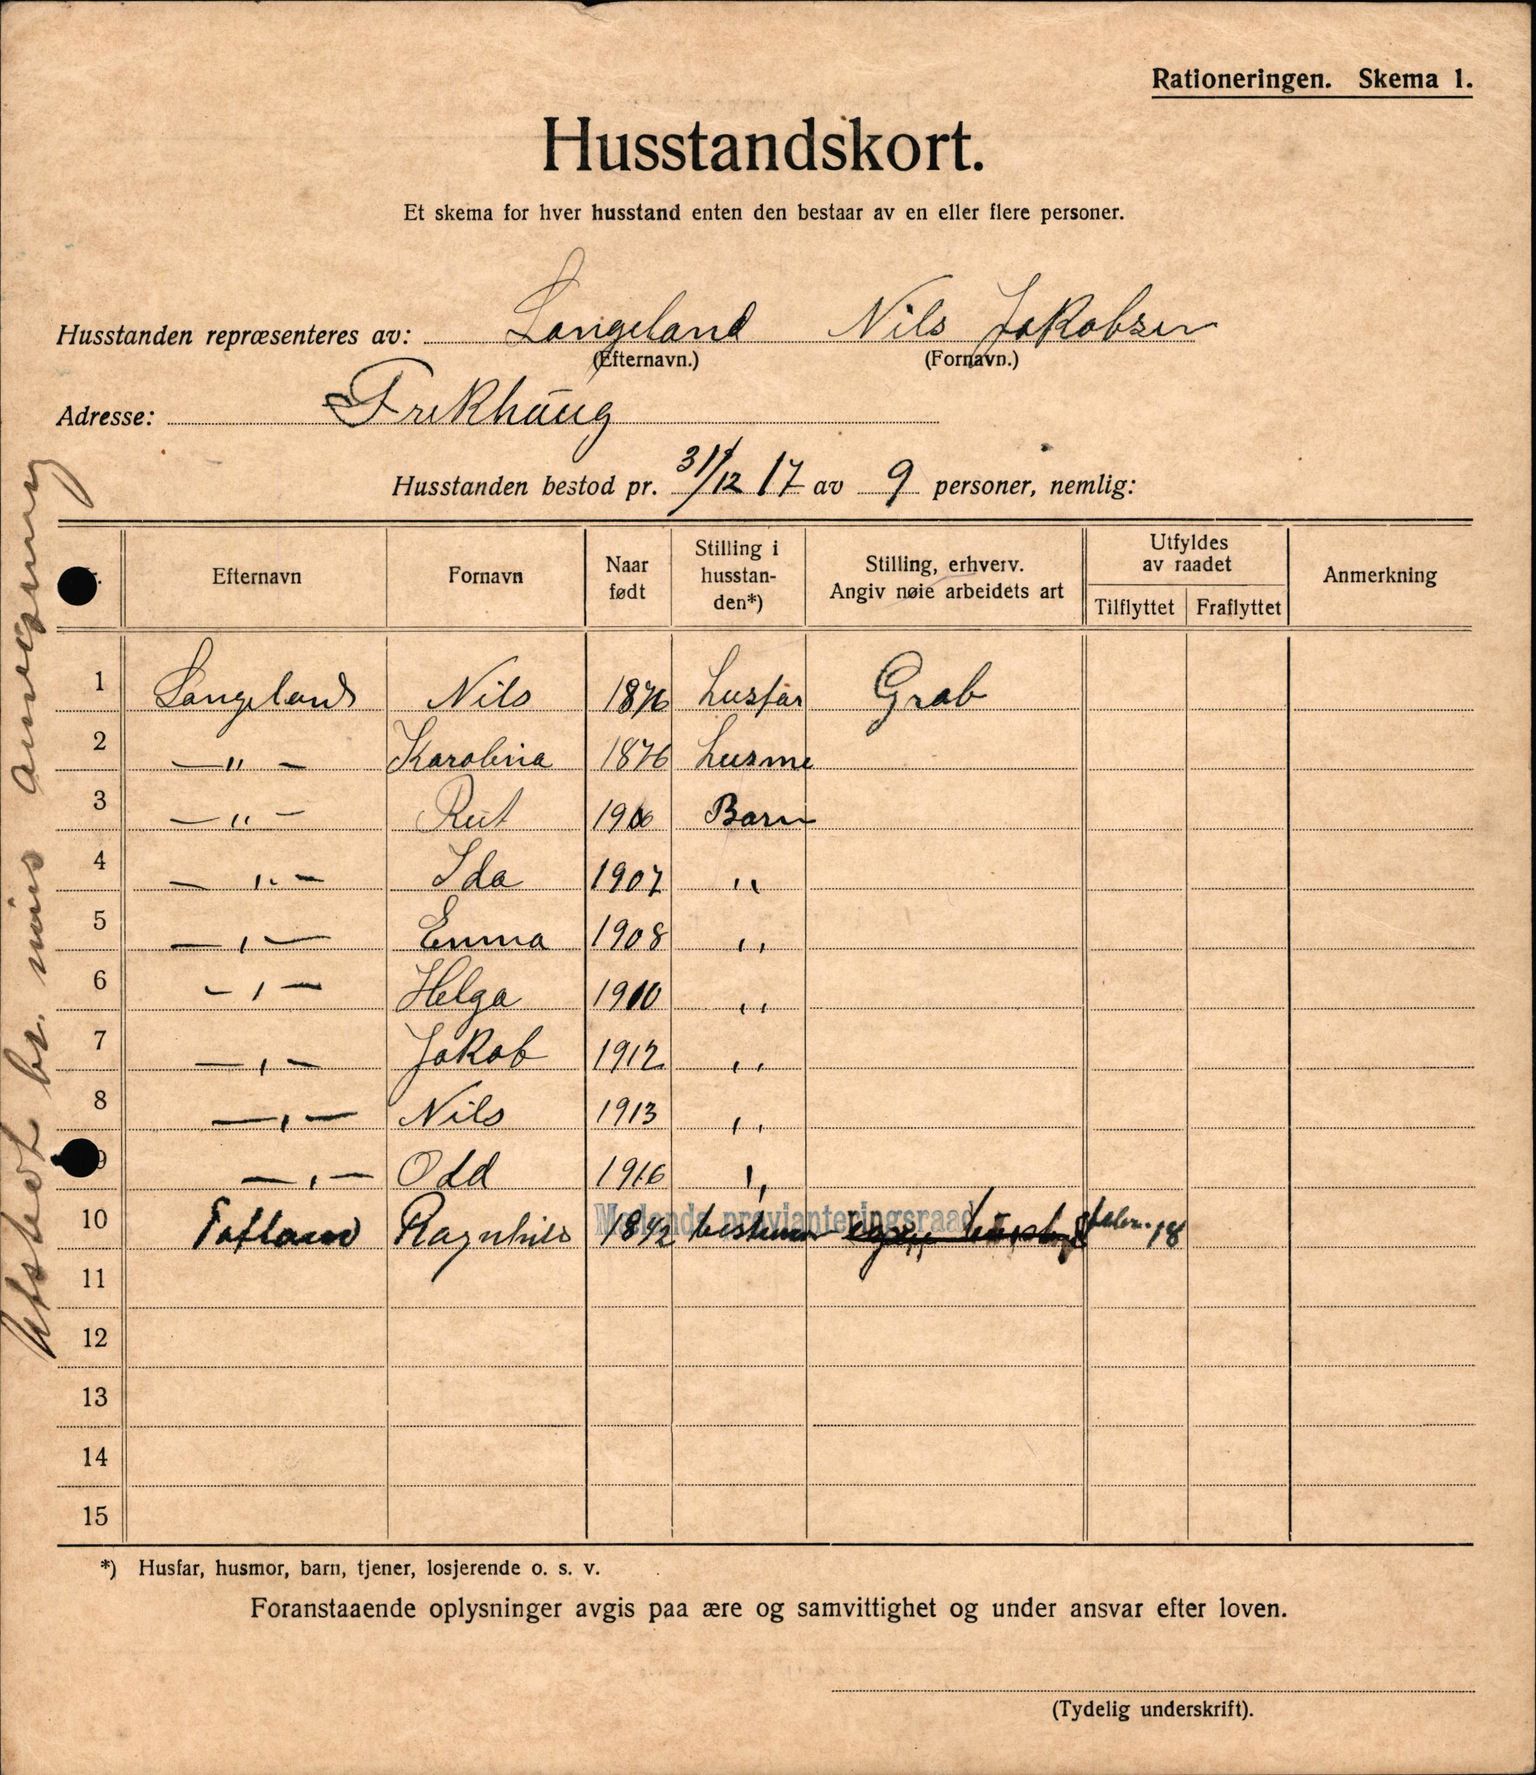 Rationeringen. Skema 1.
Husstandskort.
Et skema for hver husstand enten den bestaar av en eller flere personer.
Husstanden repræsenteres av: Langeland Nils Jakobsen
(Efternavn.) (Fornavn.)
Adresse: Frekhaug
Husstanden bestod pr. 31/12 17 av 9 personer, nemlig:
Efternavn Fornavn Naar født Stilling i husstan-den*) Stilling, erhverv. Angiv nøie arbeidets art Utfyldes av raadet Tilflyttet Fraflyttet Anmerkning
1 Langeland Nils 1876 husfar Grab
2 —"— Karolina 1876 husmo
3 —"— Rut 1906 Barn
4 —"— Ida 1907 "
5 —"— Emma 1908 "
6 —"— Helga 1910 "
7 —"— Jakob 1912 "
8 —"— Nils 1913 "
9 —"— Odd 1916 "
10 Ragnhild 1842 febr. 18
Mælands provianteringsraad
11
12
13
14
15
*) Husfar, husmor, barn, tjener, losjerende o. s. v.
Foranstaaende oplysninger avgis paa ære og samvittighet og under ansvar efter loven.
(Tydelig underskrift).